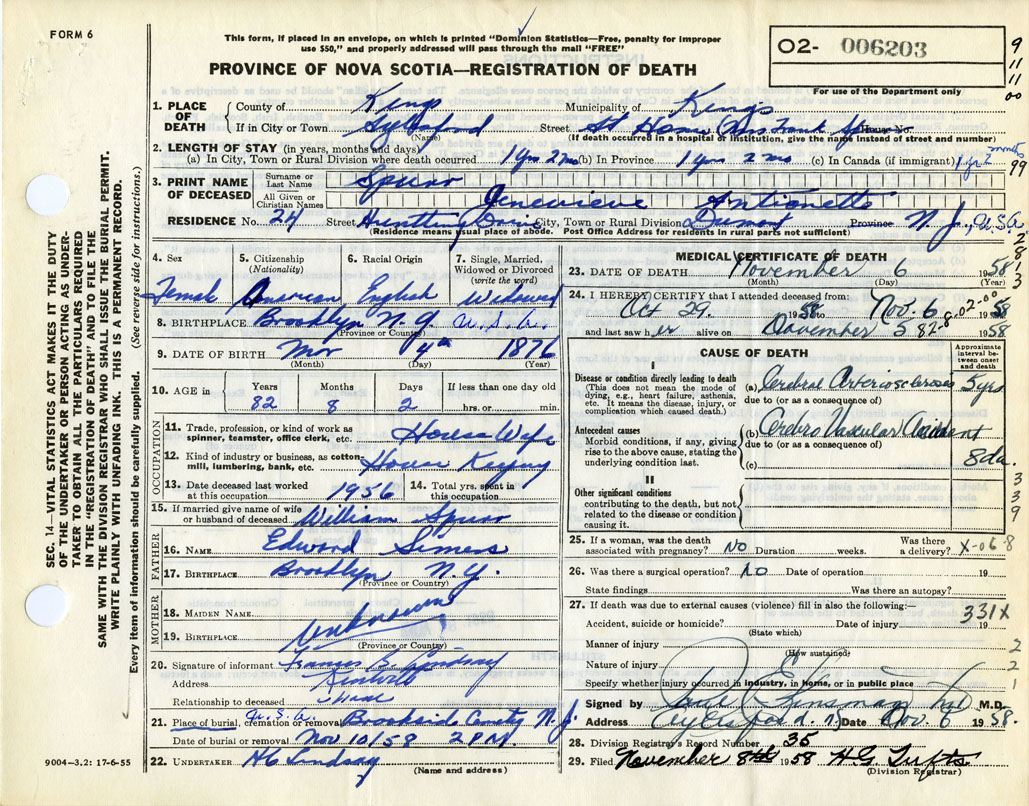 FORM 6
This form, if placed in an envelope, on which is printed "Dominion Statistics—Free, penalty for improper
use $50," and properly addressed will pass through the mail "FREE"
O2- 006203
9
11
11
00
For use of the Department only
PROVINCE OF NOVA SCOTIA—REGISTRATION OF DEATH
SEC. 14—VITAL STATISTICS ACT MAKES IT THE DUTY
OF THE UNDERTAKER OR PERSON ACTING AS UNDER-
TAKER TO OBTAIN ALL THE PARTICULARS REQUIRED
IN THE "REGISTRATION OF DEATH" AND TO FILE THE
SAME WITH THE DIVISION REGISTRAR WHO SHALL ISSUE THE BURIAL PERMIT.
WRITE PLAINLY WITH UNFADING INK. THIS IS A PERMANENT RECORD.
Every item of information should be carefully supplied. (See reverse side for instructions.)
1. PLACE OF DEATH County of Kings Municipality of Kings
If in City or Town Aylesford Street At Home (Mrs Frank House No.
(Name) (If death occurred in a hospital or institution, give the name instead of street and number)
2. LENGTH OF STAY (in years, months and days)
(a) In City, Town or Rural Division where death occurred 1 yr 2 mo (b) In Province 1 yr 2 mo (c) In Canada (if immigrant) 1 yr 2 months
99
3. PRINT NAME OF DECEASED Surname or Last Name Spurr
All Given or Christian Names Genevieve Antionette
RESIDENCE No. 24 Street Hunting Drive City, Town or Rural Division Dumont Province N.J., U.S.A.
(Residence means usual place of abode. Post Office Address for residents in rural parts not sufficient)
4. Sex Female
5. Citizenship (Nationality) American
6. Racial Origin English
7. Single, Married, Widowed or Divorced (write the word) Widowed
8. BIRTHPLACE Brooklyn N.Y. U.S.A.
(Province or Country)
9. DATE OF BIRTH Mar 4th 1876
(Month) (Day) (Year)
10. AGE in Years 82 Months 8 Days 2 If less than one day old hrs. or min.
OCCUPATION
11. Trade, profession, or kind of work as spinner, teamster, office clerk, etc. House Wife
12. Kind of industry or business, as cotton-mill, lumbering, bank, etc. House Keeping
13. Date deceased last worked at this occupation 1956 14. Total yrs. spent in this occupation
15. If married give name of wife or husband of deceased William Spurr
FATHER
16. NAME Edward Simers
17. BIRTHPLACE Brooklyn N.Y.
(Province or Country)
MOTHER
18. MAIDEN NAME Unknown
19. BIRTHPLACE
(Province or Country)
20. Signature of informant Frances E. Lindsay
Address
Relationship to deceased
21. Place of burial, cremation or removal U.S.A. N.J.
Date of burial or removal Nov 10/58 2 P.M.
22. UNDERTAKER HC Lindsay
(Name and address)
9004—3.2: 17-6-55
MEDICAL CERTIFICATE OF DEATH
23. DATE OF DEATH November 6 1958
(Month) (Day) (Year)
24. I HEREBY CERTIFY that I attended deceased from:
Oct 29. 1958 to Nov. 6 1958
and last saw her alive on November 5 1958
82-8-02-00
2
8
1
3
CAUSE OF DEATH
Approximate interval between onset and death
I
Disease or condition directly leading to death
(This does not mean the mode of dying, e.g., heart failure, asthenia, etc. It means the disease, injury, or complication which caused death.)
(a) Cerebral Arteriosclerosis 5 yrs
due to (or as a consequence of)
Antecedent causes
Morbid conditions, if any, giving rise to the above cause, stating the underlying condition last.
(b) Cerebro Vascular Accident
due to (or as a consequence of)
(c) 8 da.
II
Other significant conditions
contributing to the death, but not related to the disease or condition causing it.
3
3
9
25. If a woman, was the death associated with pregnancy? No Duration weeks. Was there a delivery? X-06-8
26. Was there a surgical operation? No Date of operation 19
State findings Was there an autopsy?
27. If death was due to external causes (violence) fill in also the following:—
331X
Accident, suicide or homicide? Date of injury 19
(State which)
Manner of injury 2
(How sustained)
Nature of injury 2
Specify whether injury occurred in industry, in Home, or in public place 1
Signed by M.D.
Address Aylesford N.S. Date Nov. 6 1958.
28. Division Registrar's Record Number 35
29. Filed November 8th 1958 HG Tufts
(Division Registrar)